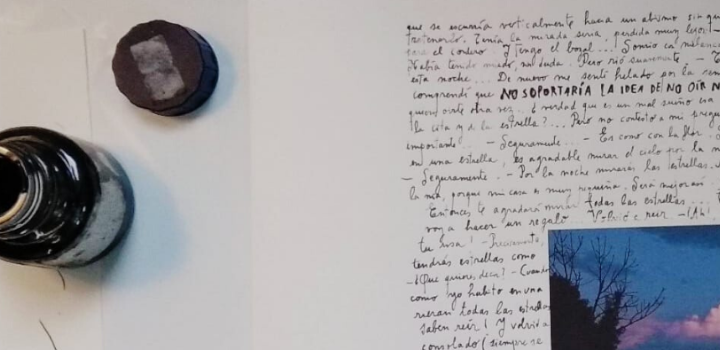 que se escurría verticalmente hacia un abismo sin que
Tenía la mirada seria, perdida muy lejos! -
para el cordero. Y tengo el bozal... Sonrió con melancolía
Había tenido miedo, sin duda. Pero rió suavemente. -
esta noche... De nuevo me sentí helado por la
comprendí que NO SOPORTARÍA LA IDEA DE NO OIR N
quiero oirte otra vez... ¿verdad que es un mal sueño con
la cita y de la estrella?... Pero no contestó a mi pregu
importante. - Seguramente - Es como con la flor.
en una estrella, es agradable mirar el cielo por la n
- Seguramente. - Por la noche mirarás las estrellas.
la mía, porque mi casa es muy pequeña. Será mejor así.
Entonces te agradará mirar todas las estrellas...
voy a hacer un regalo... Volvió a reír. - ¡Ah!
tu risa! - Precisamente,
tendrás estrellas como
- ¿Qué quieres decir? - Cuando
como yo habito en una
rieran todas las estrellas
saben reír! Y volvió a
consolado (siempre se